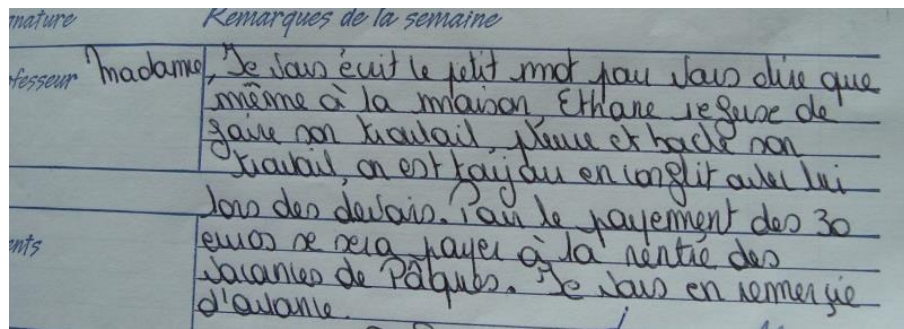 nature Remarques de la semaine
ofesseur Madame, Je vous écrit le petit mot pou vous dire que
même à la maison Ethane refuse de
faire son travail, pleure et bacle son
travail, on est toujou en conflit avec lui
lors des devoirs. Pour le payement des 30
ents euros se sera payer à la rentié des
vacances de Pâques. Je vous en remerçie
d'avance.